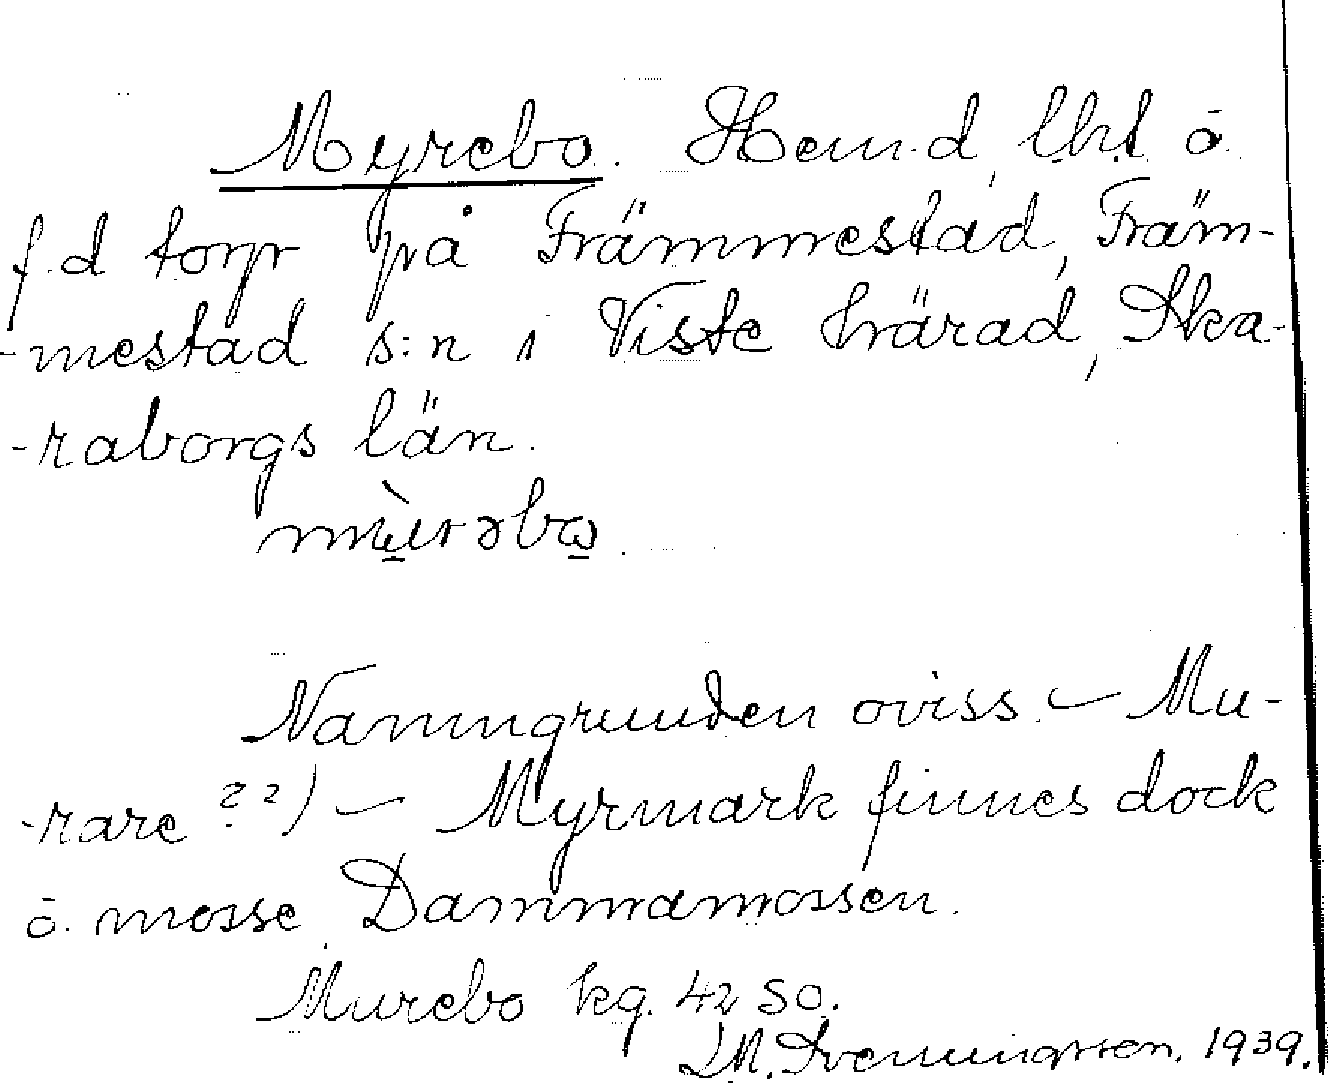 Myrebo. Hem.d, lht o.
f.d torp på Främmestad, Främ-
-mestad s:n i Viste härad, Ska-
-raborgs län.
mùrəbω.
Namngrunden oviss. – Mu-
-rare ??) – Myrmark finnes dock
o. mosse, Dammamossen.
Murebo kg. 42 SO.
Svenningsson. 1939.